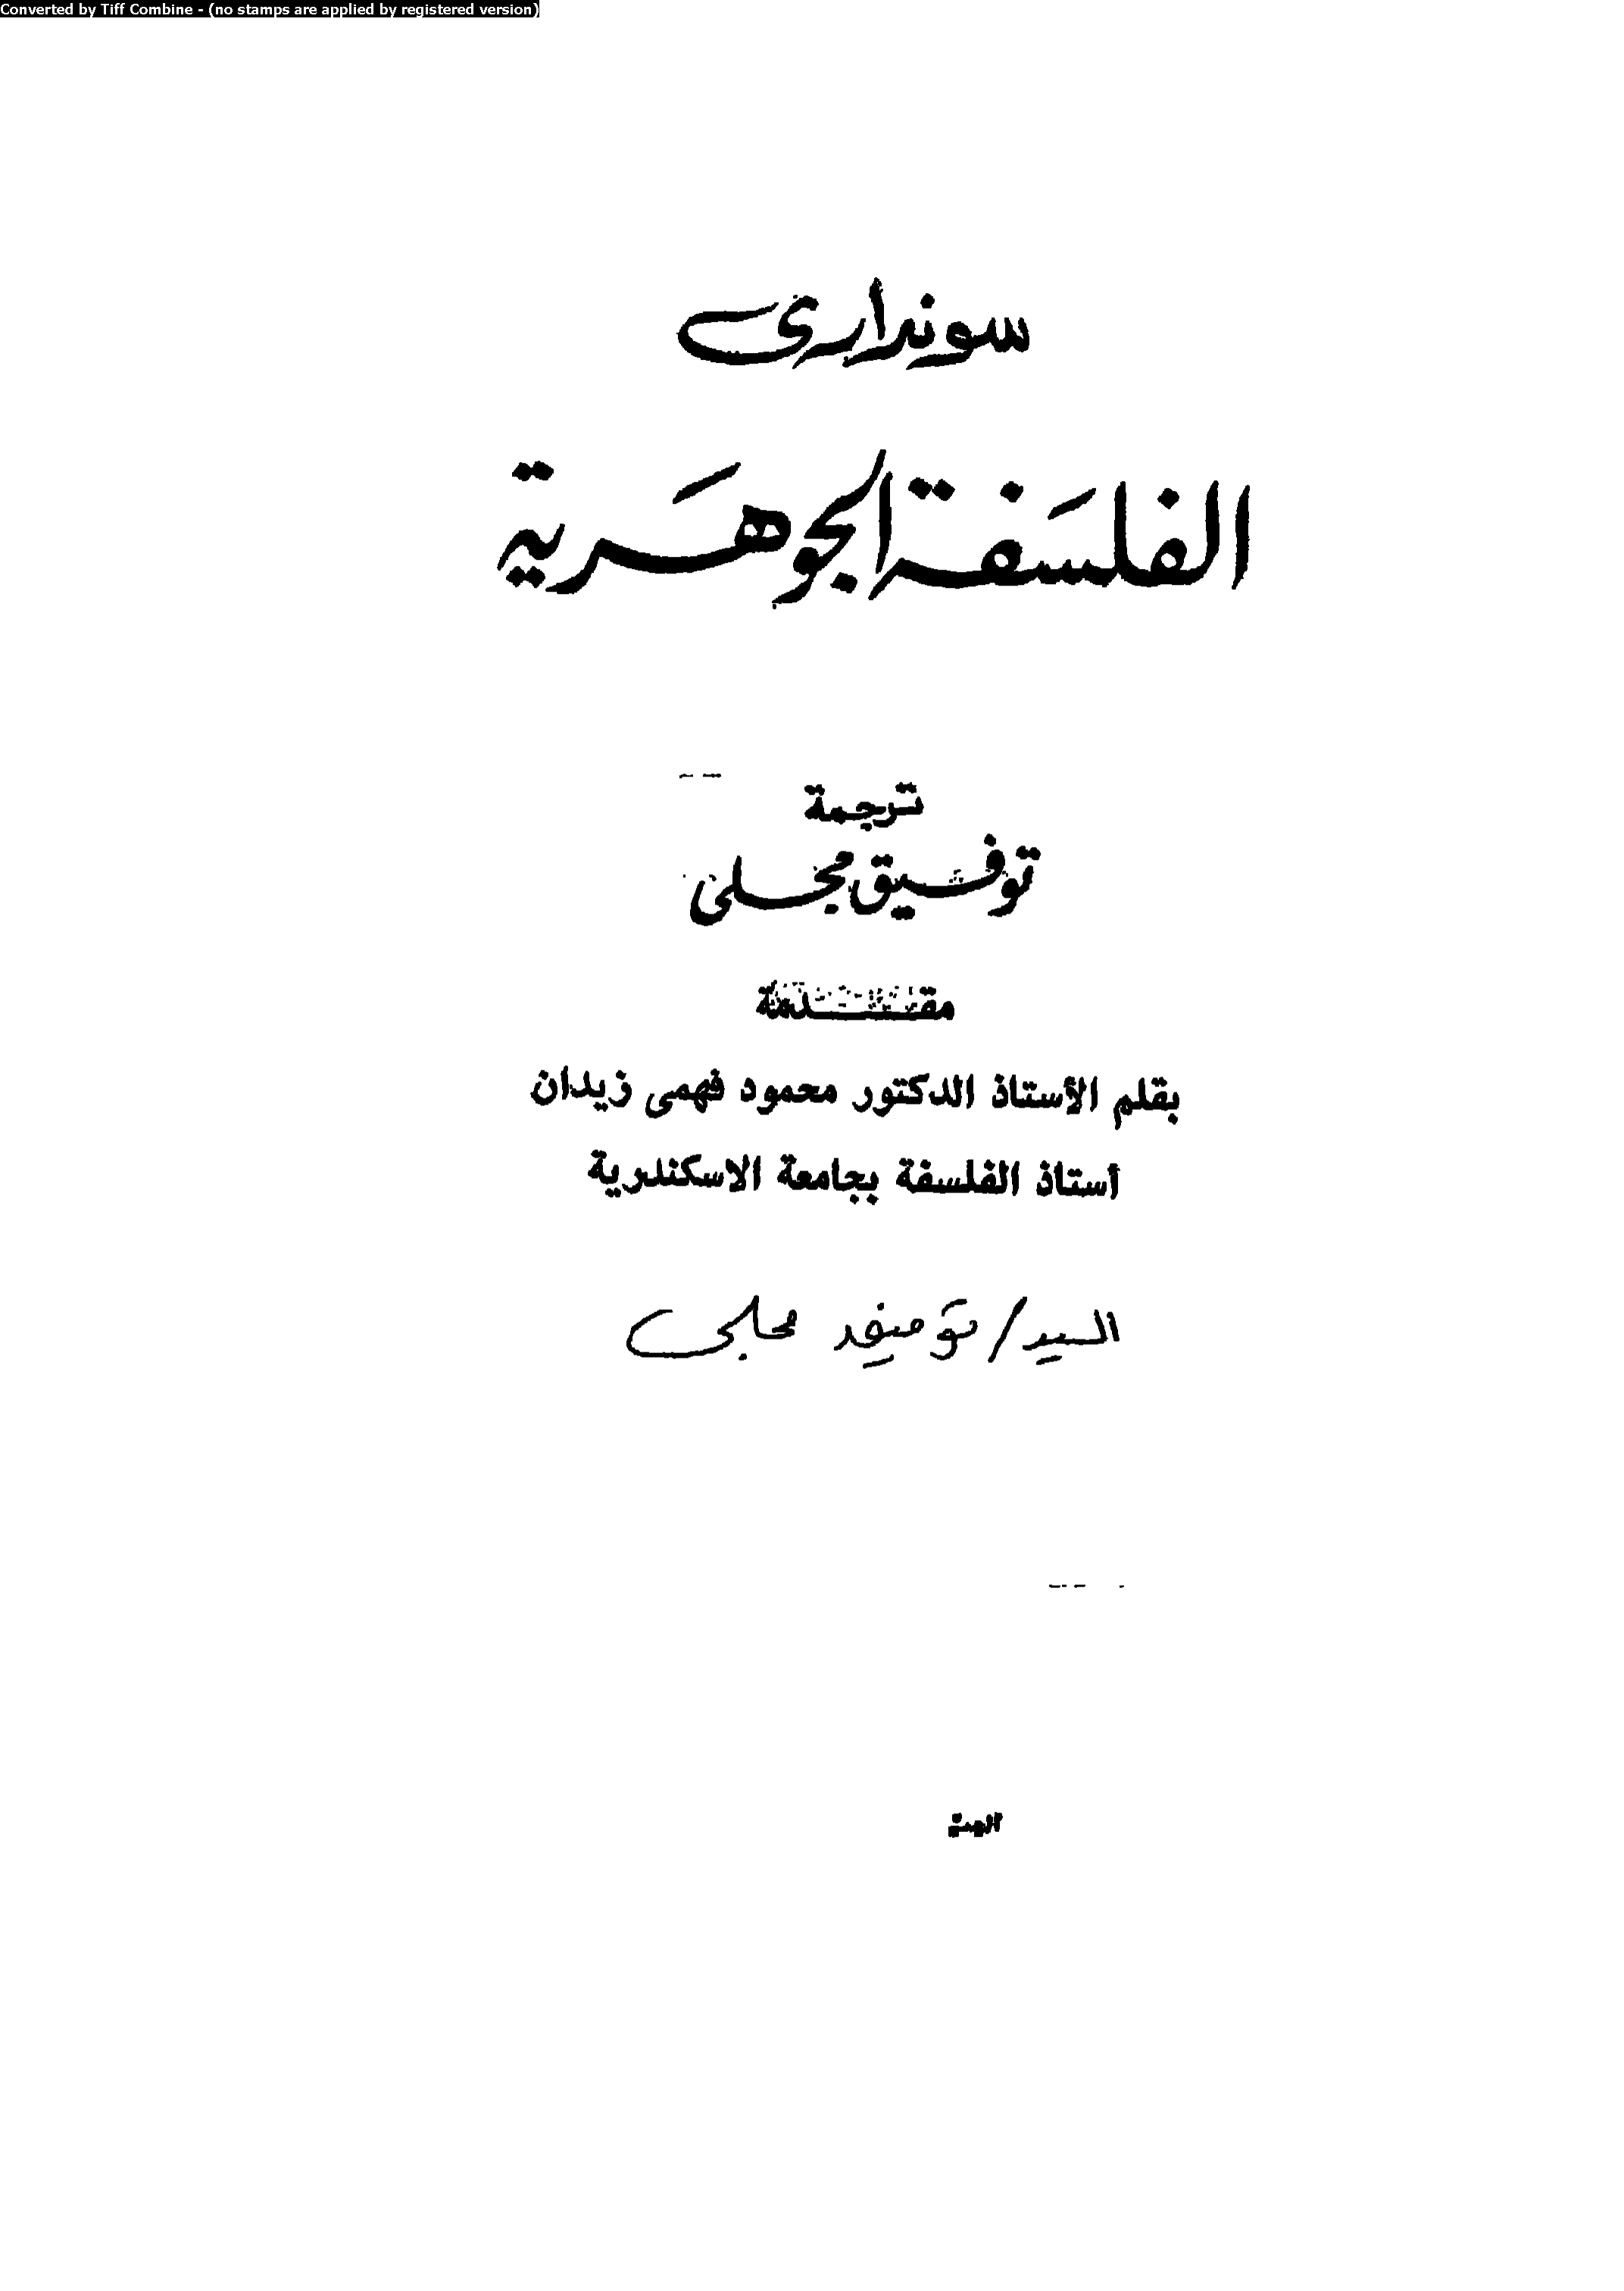 Converted by Tiff Combine - (no stamps are applied by registered version)
سوندارى
الفلسَفة الجوهَرية
ترجمة
توفيق مجلى
مقدمة
بقلم الأستاذ الدكتور محمود فهمى زيدان
أستاذ الفلسفة بجامعة الاسكندرية
السيد / توفيق مجلى